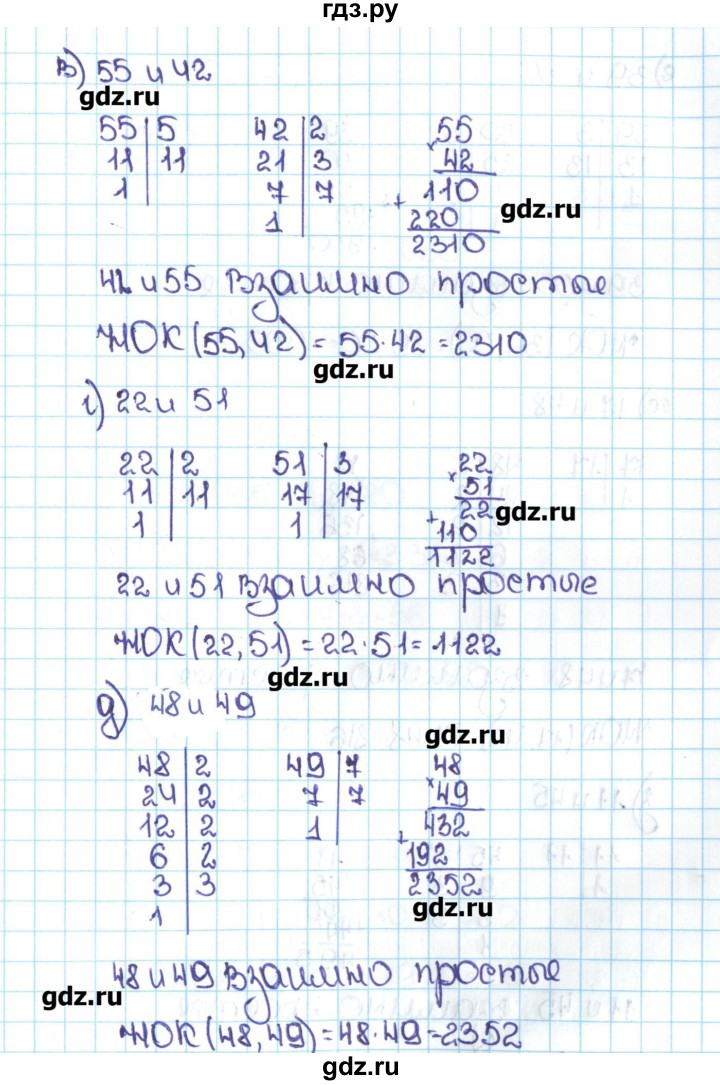 гдз.ру
в) 55 и 42
gdz.ru
55 | 5
11 | 11
1
42 | 2
21 | 3
7 | 7
1
55
× 42
110
+ 220
2310
gdz.ru
42 и 55 взаимно простые
НОК(55,42) = 55·42 = 2310
gdz.ru
г) 22 и 51
22 | 2
11 | 11
1
51 | 3
17 | 17
1
22
× 51
22
+ 110
1122
gdz.ru
22 и 51 взаимно простые
НОК(22,51) = 22·51 = 1122
gdz.ru
д) 48 и 49
gdz.ru
48 | 2
24 | 2
12 | 2
6 | 2
3 | 3
1
49 | 7
7 | 7
1
48
× 49
432
+ 192
2352
gdz.ru
48 и 49 взаимно простые
gdz.ru
НОК(48,49) = 48·49 = 2352
gdz.ru